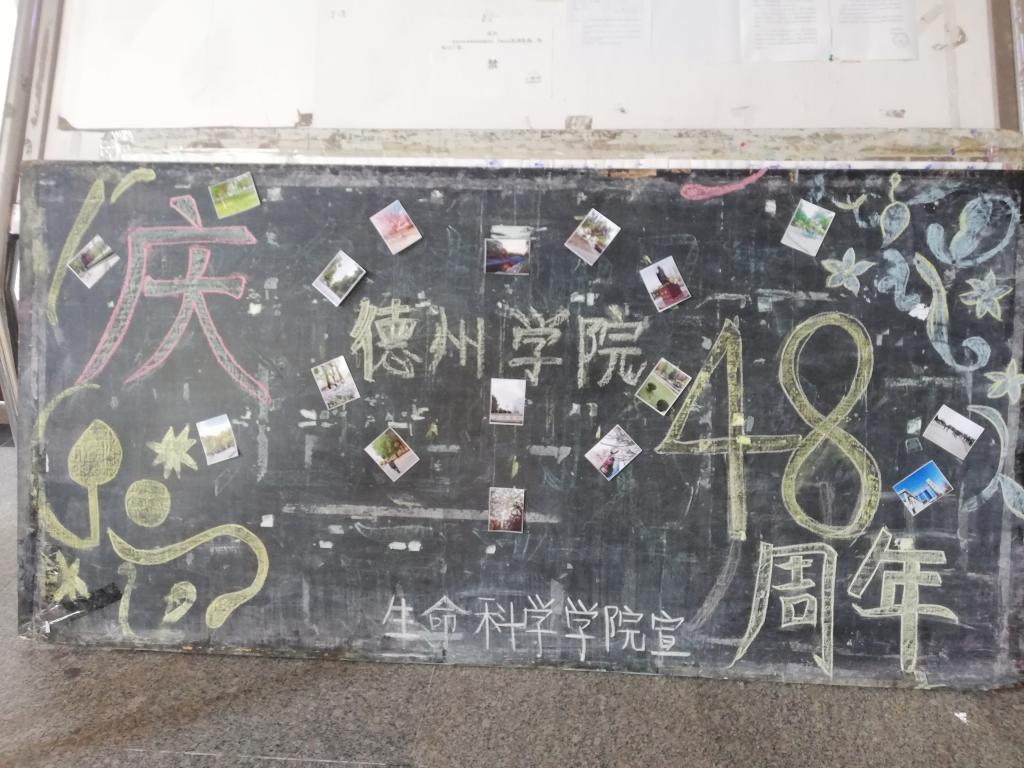 禁
庆
德州学院
48
周年
生命科学学院宣